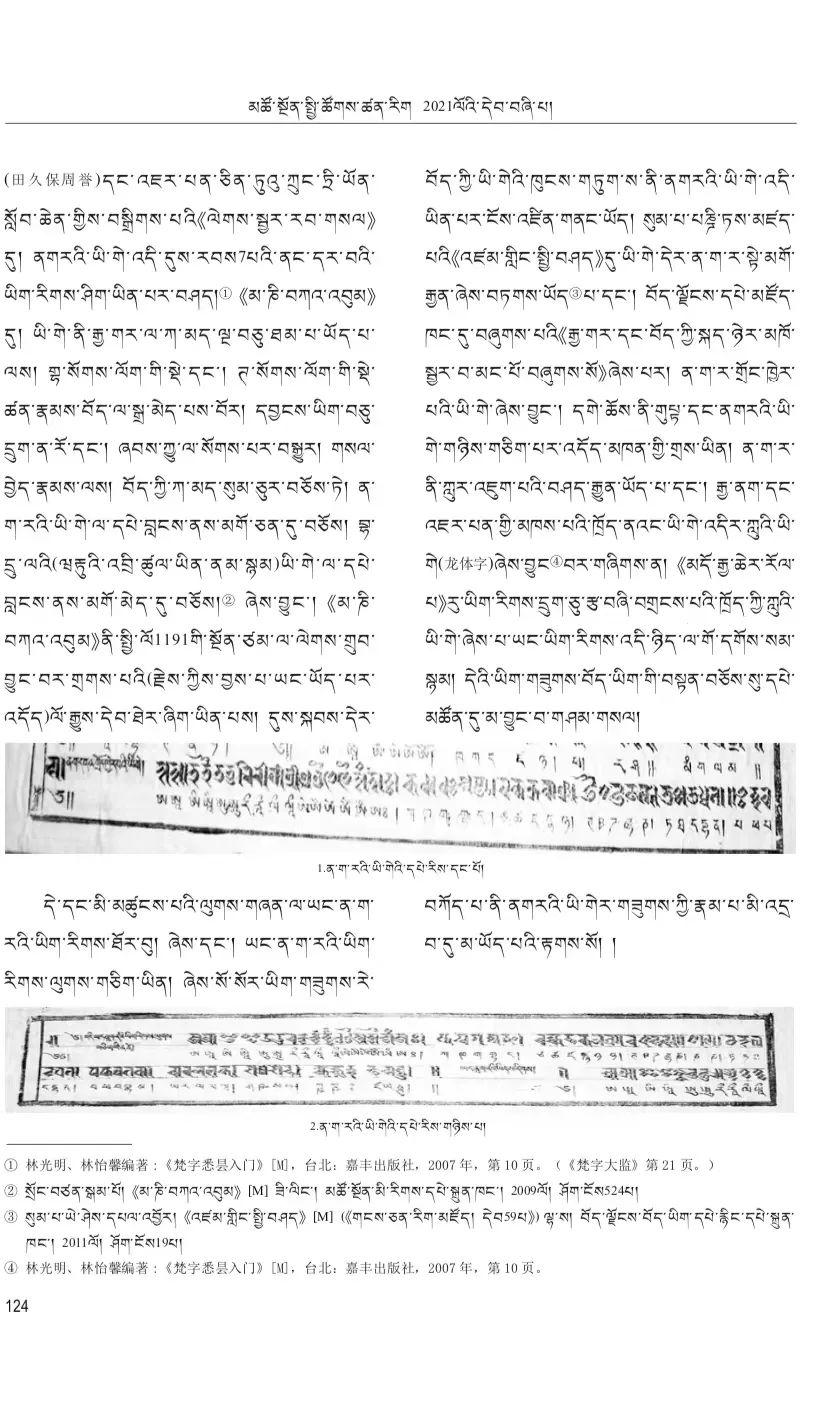 མཚོ་སྔོན་སྤྱི་ཚོགས་ཚན་རིག 2021ལོའི་དེབ་བཞི་པ།
(田久保周誉)དང་འཇར་པན་ཅིན་ཏུའུ་ཀྲུང་ཏྲི་ཡོན་
སློབ་ཆེན་གྱིས་བསྒྲིགས་པའི《ལེགས་སྦྱར་རབ་གསལ》
དུ། ནགརའི་ཡི་གེ་འདི་དུས་རབས7པའི་ནང་དར་བའི་
ཡིག་རིགས་ཤིག་ཡིན་པར་བཤད།① 《མ་ཎི་བཀའ་འབུམ》
དུ། ཡི་གེ་ནི་རྒྱ་གར་ལ་ཀ་མད་ལྔ་བཅུ་ཐམ་པ་ཡོད་པ་
ལས། གྷ་སོགས་ལོག་གི་སྡེ་དང་། ཊ་སོགས་ལོག་གི་སྡེ་
ཚན་རྣམས་བོད་ལ་སྒྲ་མེད་པས་བོར། དབྱངས་ཡིག་བཅུ་
དྲུག་ན་རོ་དང་། ཞབས་ཀྱུ་ལ་སོགས་པར་བསྒྱུར། གསལ་
བྱེད་རྣམས་ལས། བོད་ཀྱི་ཀ་མད་སུམ་ཅུར་བཅོས་ཏེ། ན་
ག་རའི་ཡི་གེ་ལ་དཔེ་བླངས་ནས་མགོ་ཅན་དུ་བཅོས། བྷ་
དྲུ་ལའི(ཝརྟུའི་འབྲི་ཚུལ་ཡིན་ནམ་སྙམ)ཡི་གེ་ལ་དཔེ་
བླངས་ནས་མགོ་མེད་དུ་བཅོས།② ཞེས་བྱུང་། 《མ་ཎི་
བཀའ་འབུམ》ནི་སྤྱི་ལོ1191གི་སྔོན་ཙམ་ལ་ལེགས་གྲུབ་
བྱུང་བར་གྲགས་པའི(རྗེས་ཀྱིས་བྱས་པ་ཡང་ཡོད་པར་
འདོད)ལོ་རྒྱུས་དེབ་ཐེར་ཞིག་ཡིན་པས། དུས་སྐབས་དེར་
བོད་ཀྱི་ཡི་གེའི་ཁུངས་གཏུག་ས་ནི་ནགརའི་ཡི་གེ་འདི་
ཡིན་པར་ངོས་འཛིན་གནང་ཡོད། སུམ་པ་པཎྜི་ཏས་མཛད་
པའི《འཛམ་གླིང་སྤྱི་བཤད》དུ་ཡི་གེ་དེར་ན་ག་ར་སྟེ་མགོ་
རྒྱན་ཞེས་བཏགས་ཡོད③པ་དང་། བོད་ལྗོངས་དཔེ་མཛོད་
ཁང་དུ་བཞུགས་པའི《རྒྱ་གར་དང་བོད་ཀྱི་སྐད་ཉེར་མཁོ་
སྦྱར་བ་མང་པོ་བཞུགས་སོ》ཞེས་པར། ན་ག་ར་གྲོང་ཁྱེར་
པའི་ཡི་གེ་ཞེས་བྱུང་། དགེ་ཆོས་ནི་གུཔྟ་དང་ནགརའི་ཡི་
གེ་གཉིས་གཅིག་པར་འདོད་མཁན་གྱི་གྲས་ཡིན། ན་ག་ར་
ནི་ཀླུར་འཇུག་པའི་བཤད་རྒྱུན་ཡོད་པ་དང་། རྒྱ་ནག་དང་
འཇར་པན་གྱི་མཁས་པའི་ཁྲོད་ནའང་ཡི་གེ་འདིར་ཀླུའི་ཡི་
གེ(龙体字)ཞེས་བྱུང④བར་གཞིགས་ན། 《མདོ་རྒྱ་ཆེར་རོལ་
པ》རུ་ཡིག་རིགས་དྲུག་ཅུ་རྩ་བཞི་བགྲངས་པའི་ཁྲོད་ཀྱི་ཀླུའི་
ཡི་གེ་ཞེས་པ་ཡང་ཡིག་རིགས་འདི་ཉིད་ལ་གོ་དགོས་སམ་
སྙམ། དེའི་ཡིག་གཟུགས་བོད་ཡིག་གི་བསྟན་བཅོས་སུ་དཔེ་
མཚོན་དུ་མ་བྱུང་བ་གཤམ་གསལ།
1.ན་ག་རའི་ཡི་གེའི་དཔེ་རིས་དང་པོ།
དེ་དང་མི་མཚུངས་པའི་ལུགས་གཞན་ལ་ཡང་ན་ག་
རའི་ཡིག་རིགས་ཐོར་བུ། ཞེས་དང་། ཡང་ན་ག་རའི་ཡིག་
རིགས་ལུགས་གཅིག་ཡིན། ཞེས་སོ་སོར་ཡིག་གཟུགས་རེ་
བཀོད་པ་ནི་ནགརའི་ཡི་གེར་གཟུགས་ཀྱི་རྣམ་པ་མི་འདྲ་
བ་དུ་མ་ཡོད་པའི་རྟགས་སོ། །
2.ན་ག་རའི་ཡི་གེའི་དཔེ་རིས་གཉིས་པ།
① 林光明、林怡馨编著：《梵字悉昙入门》[M]，台北：嘉丰出版社，2007 年，第 10 页。（《梵字大监》第 21 页。）
② སྲོང་བཙན་སྒམ་པོ། 《མ་ཎི་བཀའ་འབུམ》[M] ཟི་ལིང་། མཚོ་སྔོན་མི་རིགས་དཔེ་སྐྲུན་ཁང་། 2009ལོ། ཤོག་ངོས524པ།
③ སུམ་པ་ཡེ་ཤེས་དཔལ་འབྱོར། 《འཛམ་གླིང་སྤྱི་བཤད》[M] (《གངས་ཅན་རིག་མཛོད། དེབ59པ》) ལྷ་ས། བོད་ལྗོངས་བོད་ཡིག་དཔེ་རྙིང་དཔེ་སྐྲུན་
ཁང་། 2011ལོ། ཤོག་ངོས19པ།
④ 林光明、林怡馨编著：《梵字悉昙入门》[M]，台北：嘉丰出版社，2007 年，第 10 页。
124